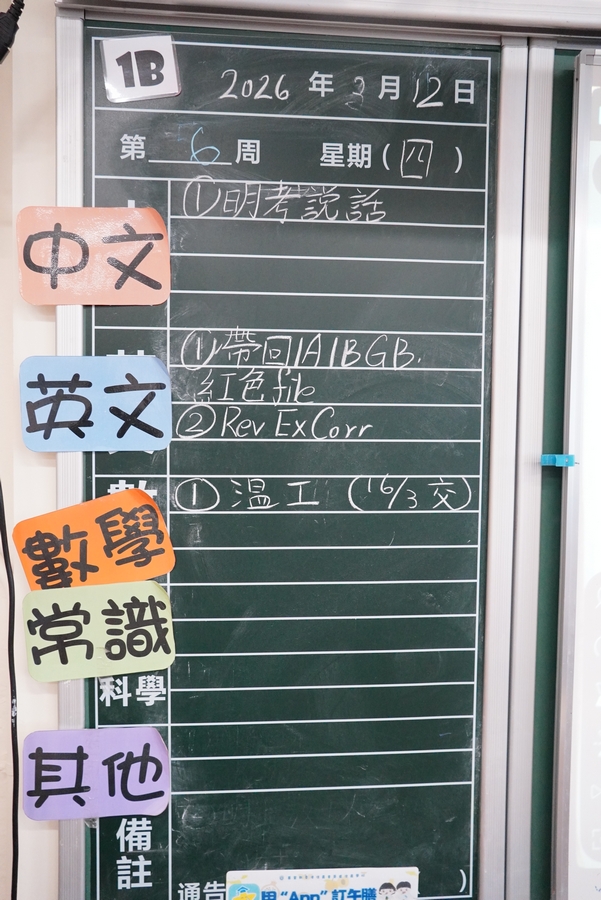 1B
2026 年 3 月 12 日
第 6 周 星期 ( 四 )
中文
① 明考説話
英文
① 帶回 1A 1B GB.
紅色 file
② Rev Ex Corr
數學
① 溫工 (16/3 交)
常識
科學
其他
備註
通告
用 "App" 訂午膳
)